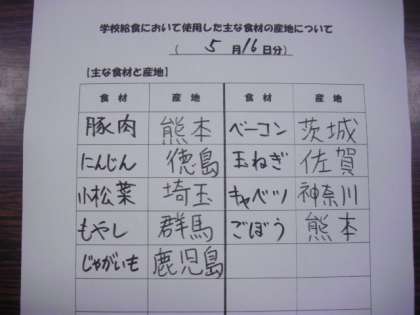 学校給食において使用した主な食材の産地について
( 5 月 16 日分)
【主な食材と産地】
食 材 産 地 食 材 産 地
豚肉 熊本 ベーコン 茨城
にんじん 徳島 玉ねぎ 佐賀
小松菜 埼玉 キャベツ 神奈川
もやし 群馬 ごぼう 熊本
じゃがいも 鹿児島